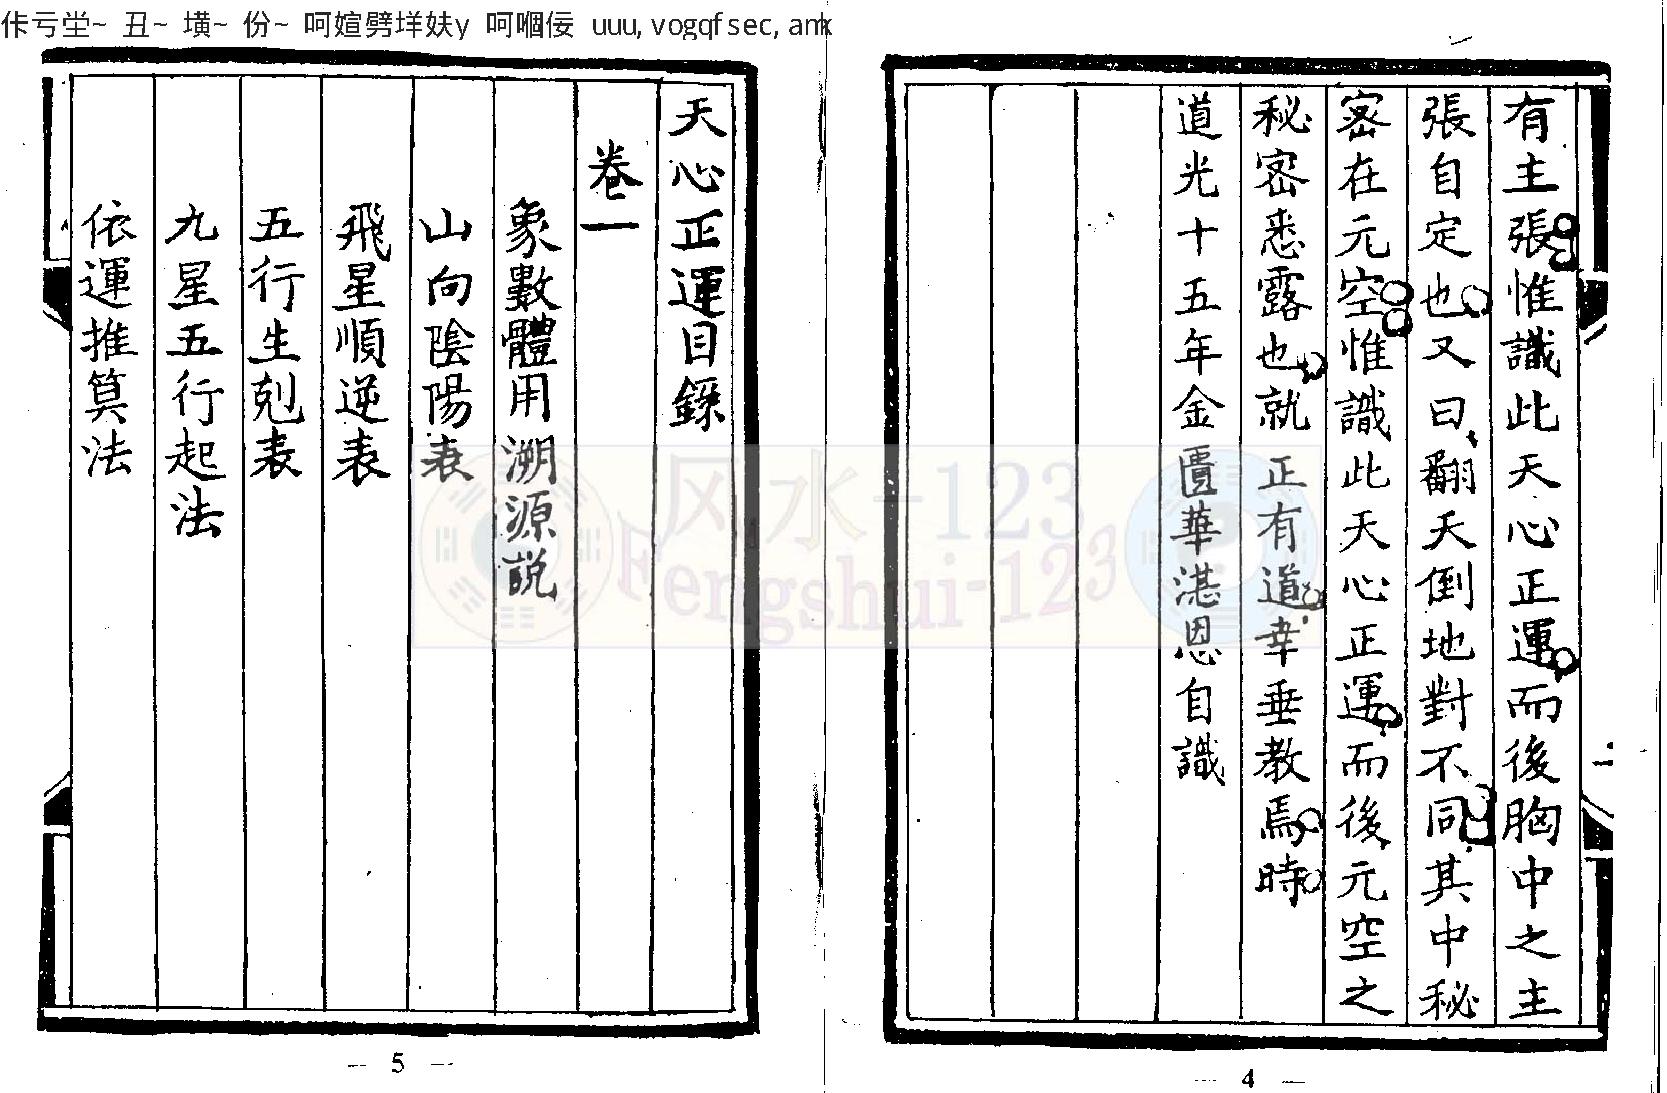 佧亏坣~ 丑~ 墴~ 份~ 呵媗劈垟妋y 呵嘓佞 uuu, vogqfsec, amk
有主張惟識此天心正運而後胸中之主
張自定也又曰翻天倒地對不同其中秘
密在元空惟識此天心正運而後元空之
秘密悉露也就正有道幸垂教焉時
道光十五年金匱華湛恩自識
一
— 4 —
天心正運目錄
卷一
象數體用溯源説
山向陰陽表
飛星順逆表
五行生剋表
九星五行起法
依運推算法
— 5 —
风水-123
Fengshui-123